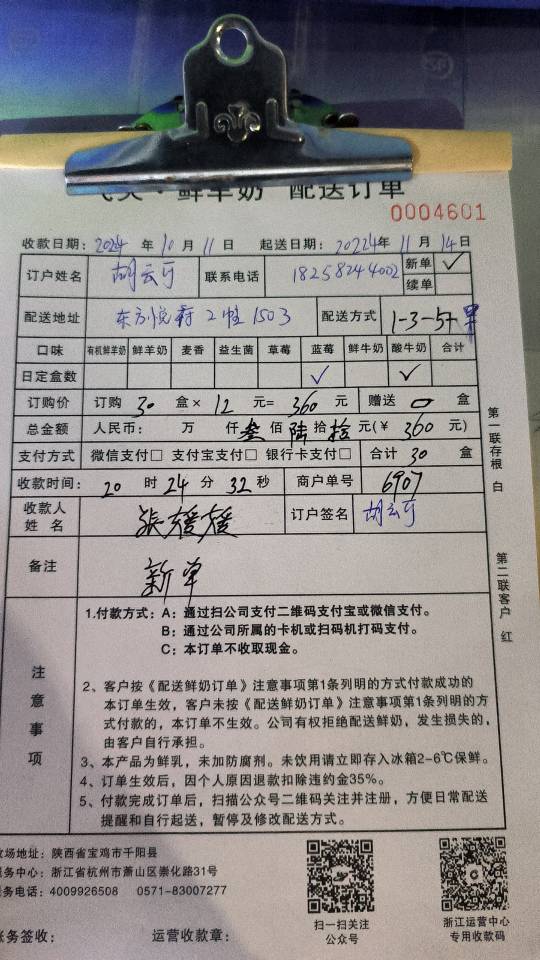 ·鲜羊奶 配送订单
0004601
收款日期：2024 年 10 月 11 日 起送日期：20224年 11 月 14日
订户姓名 胡云 联系电话 18258244002 新单 ✓
续单
配送地址 东方悦府 2幢 1503 配送方式 1-3-5
口味 有机鲜羊奶 鲜羊奶 麦香 益生菌 草莓 蓝莓 鲜牛奶 酸牛奶 合计
日定盒数 ✓ ✓
订购价 订购 30 盒× 12 元= 360 元 赠送 0 盒
总金额 人民币： 万 仟 叁 佰 陆 拾 元(￥ 360 元)
支付方式 微信支付□ 支付宝支付□ 银行卡支付□ 合计 30 盒
收款时间： 20 时 24 分 32 秒 商户单号 6907
收款人姓名 张媛媛 订户签名 胡云
备注 新单
注意事项
1.付款方式：A：通过扫公司支付二维码支付宝或微信支付。
B：通过公司所属的卡机或扫码机打码支付。
C：本订单不收取现金。
2、客户按《配送鲜奶订单》注意事项第1条列明的方式付款成功的
本订单生效，客户未按《配送鲜奶订单》注意事项第1条列明的方
式付款的，本订单不生效。公司有权拒绝配送鲜奶，发生损失的，
由客户自行承担。
3、本产品为鲜乳，未加防腐剂。未饮用请立即存入冰箱2-6℃保鲜。
4、订单生效后，因个人原因退款扣除违约金35%。
5、付款完成订单后，扫描公众号二维码关注并注册，方便日常配送
提醒和自行起送，暂停及修改配送方式。
第一联存根 白
第二联客户 红
牧场地址：陕西省宝鸡市千阳县
服务中心：浙江省杭州市萧山区崇化路31号
服务电话：4009926508 0571-83007277
账务签收： 运营收款章：
扫一扫关注
公众号
浙江运营中心
专用收款码